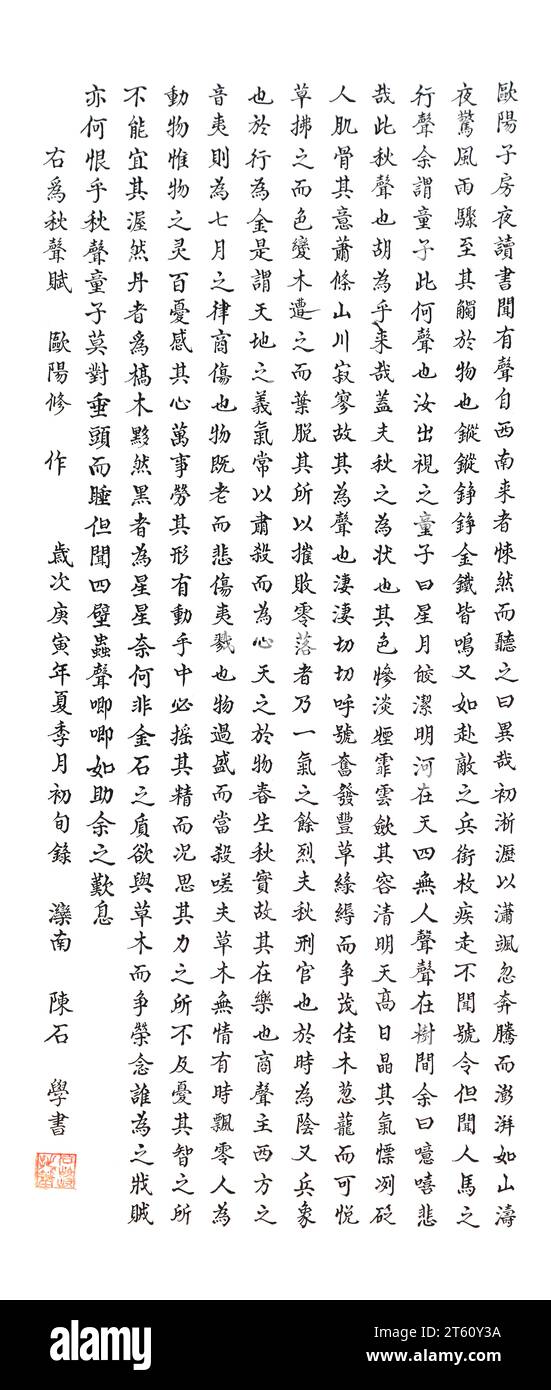 歐陽子房夜讀書聞有聲自西南来者悚然而聽之曰異哉初淅瀝以瀟颯忽奔騰而澎湃如山濤
夜驚風雨驟至其觸於物也鏦鏦錚錚金鐵皆鳴又如赴敵之兵銜枚疾走不聞號令但聞人馬之
行聲余謂童子此何聲也汝出視之童子曰星月皎潔明河在天四無人聲聲在樹間余曰噫嘻悲
哉此秋聲也胡為乎来哉蓋夫秋之為状也其色慘淡煙霏雲歛其容清明天高日晶其氣慄冽砭
人肌骨其意蕭條山川寂寥故其為聲也淒淒切切呼號奮發豐草綠縟而争茂佳木葱蘢而可悦
草拂之而色變木遭之而葉脱其所以摧敗零落者乃一氣之餘烈夫秋刑官也於時為陰又兵象
也於行為金是謂天地之義氣常以肅殺而為心天之於物春生秋實故其在樂也商聲主西方之
音夷則為七月之律商傷也物既老而悲傷夷戮也物過盛而當殺嗟夫草木無情有時飄零人為
動物惟物之灵百憂感其心萬事勞其形有動乎中必摇其精而况思其力之所不及憂其智之所
不能宜其渥然丹者爲槁木黟然黑者為星星奈何非金石之質欲與草木而争榮念誰為之戕賊
亦何恨乎秋聲童子莫對垂頭而睡但聞四壁蟲聲唧唧如助余之歎息
右爲秋聲賦 歐陽修 作 歲次庚寅年夏季月初旬錄 灤南 陳石 學書
alamy
Image ID: 2T60Y3A
www.alamy.com